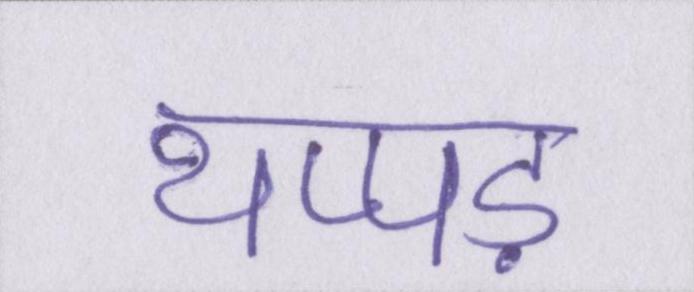 थप्पड़